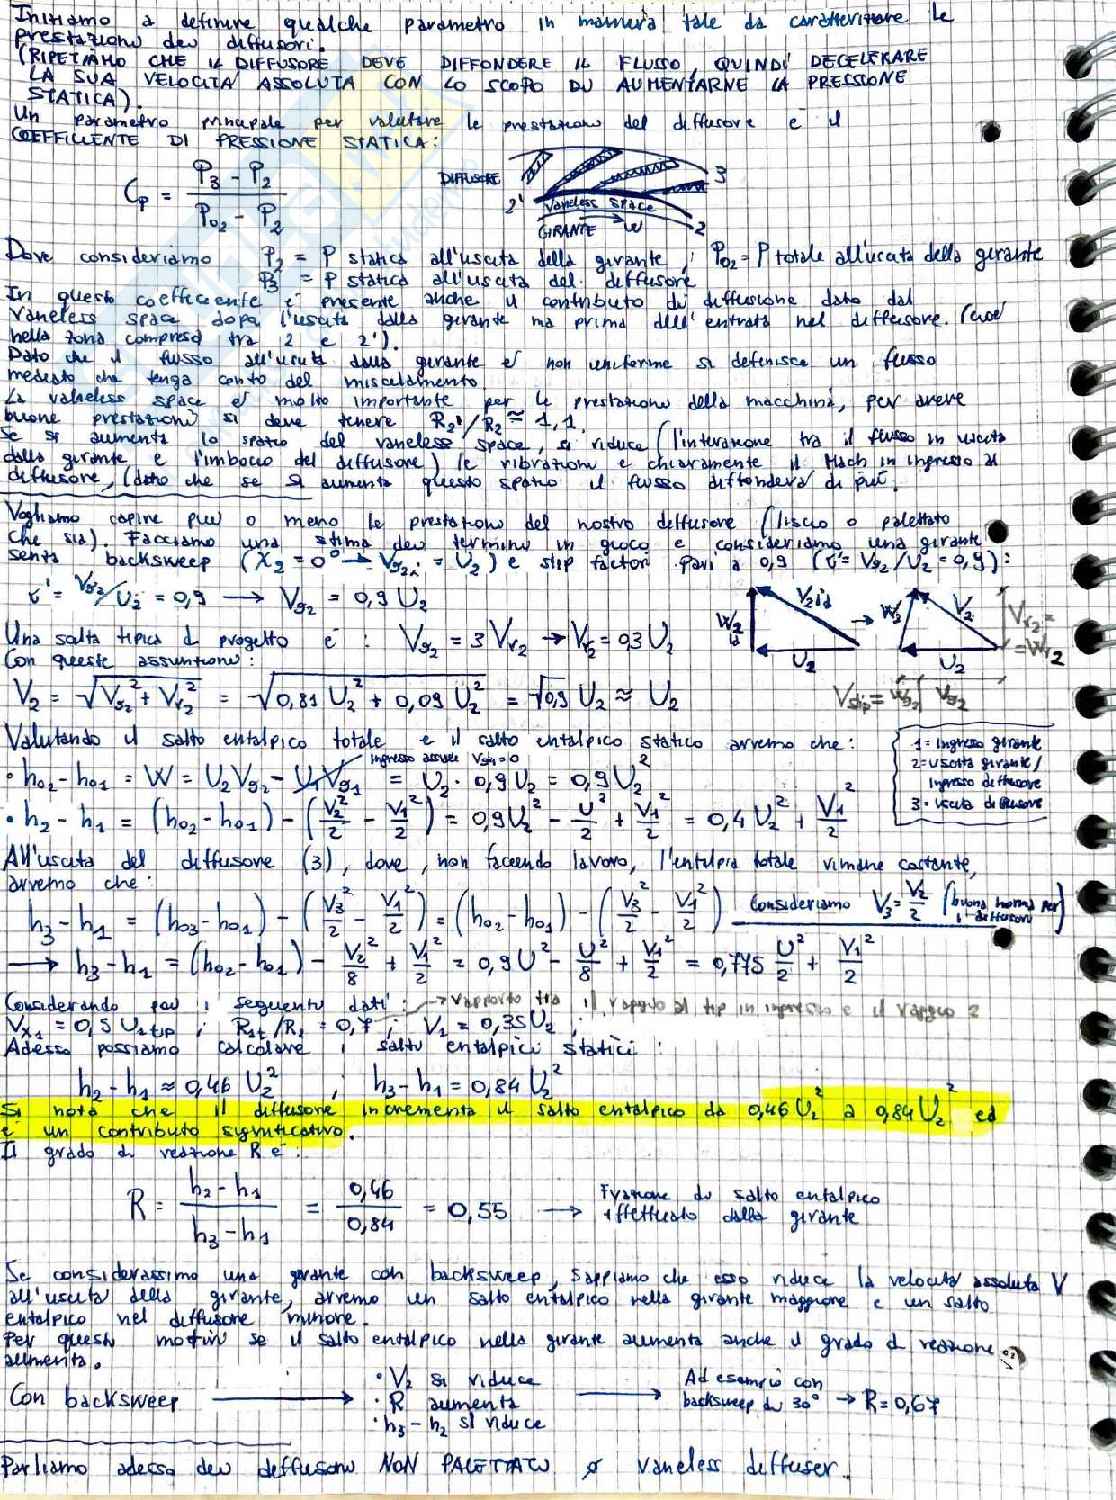 Iniziamo a definire qualche parametro in maniera tale da caratterizzare le
prestazioni dei diffusori.
(RIPETIAMO CHE IL DIFFUSORE DEVE DIFFONDERE IL FLUSSO, QUINDI DECELERARE
LA SUA VELOCITÀ ASSOLUTA CON LO SCOPO DI AUMENTARNE LA PRESSIONE
STATICA).
Un parametro principale per valutare le prestazioni del diffusore è il
COEFFICIENTE DI PRESSIONE STATICA:
Cp = (P3 - P2) / (P02 - P2)
DIFFUSORE
3
2'
Vaneless Space
2
GIRANTE ω
Dove consideriamo P2 = P statica all'uscita della girante ; P02 = P totale all'uscita della girante
P3 = P statica all'uscita del diffusore
In questo coefficiente è presente anche il contributo di diffusione dato dal
vaneless space dopo l'uscita dalla girante ma prima dell'entrata nel diffusore. (cioè
nella zona compresa tra 2 e 2').
Dato che il flusso all'uscita dalla girante è non uniforme si definisce un flusso
mediato che tenga conto del miscelamento
La vaneless space è molto importante per le prestazioni della macchina, per avere
buone prestazioni si deve tenere R2'/R2 ≅ 1,1.
Se si aumenta lo spazio del vaneless space, si riduce (l'interazione tra il flusso in uscita
dalla girante e l'imbocco del diffusore) le vibrazioni e chiaramente il Mach in ingresso al
diffusore, (dato che se si aumenta questo spazio il flusso diffonderà di più.
Vogliamo capire più o meno le prestazioni del nostro diffusore (liscio o palettato
che sia). Facciamo una stima dei termini in gioco e consideriamo una girante
senza backsweep (χ2 = 0° → Vϑ2i = U2) e slip factor pari a 0,9 (τ' = Vϑ2/U2 = 0,9):
τ' = Vϑ2/U2 = 0,9 → Vϑ2 = 0,9 U2
W2id V2id U2 → W2 V2 U2 Vr2 = = Wr2
Una scelta tipica di progetto è : Vϑ2 = 3 Vr2 → Vr2 = 0,3 U2
Con queste assunzioni:
Vslip = Wϑ2 Vϑ2
V2 = √(Vϑ2² + Vr2²) = √(0,81 U2² + 0,09 U2²) = √0,9 U2 ≈ U2
Valutando il salto entalpico totale e il salto entalpico statico avremo che:
1 = Ingresso girante
2 = uscita girante /
Ingresso diffusore
3 = uscita diffusore
ingresso assiale Vϑ1=0
• h02 - h01 = W = U2Vϑ2 - U1Vϑ1 = U2 · 0,9 U2 = 0,9 U2²
• h2 - h1 = (h02 - h01) - (V2²/2 - V1²/2) = 0,9U2² - U²/2 + V1²/2 = 0,4 U2² + V1²/2
All'uscita del diffusore (3), dove, non facendo lavoro, l'entalpia totale rimane costante,
avremo che:
h3 - h1 = (h03 - h01) - (V3²/2 - V1²/2) = (h02 - h01) - (V3²/2 - V1²/2) Consideriamo V3 = V2/2 (buona norma per i diffusori)
→ h3 - h1 = (h02 - h01) - V2²/8 + V1²/2 = 0,9U² - U²/8 + V1²/2 = 0,775 U²/2 + V1²/2
Considerando poi i seguenti dati : → rapporto tra il raggio al tip in ingresso e il raggio 2
Vx1 = 0,5 U1tip ; R1t/R2 = 0,7 ; V1 = 0,35U2 ;
Adesso possiamo calcolare i salti entalpici statici :
h2 - h1 ≈ 0,46 U2² ; h3 - h1 = 0,84 U2²
Si nota che il diffusore incrementa il salto entalpico da 0,46 U2² a 0,84 U2² ed
è un contributo significativo.
Il grado di reazione R è :
R = (h2 - h1) / (h3 - h1) = 0,46 / 0,84 = 0,55 → Frazione di salto entalpico
effettuato dalla girante
Se considerassimo una girante con backsweep, sappiamo che esso riduce la velocità assoluta V
all'uscita della girante, avremo un salto entalpico nella girante maggiore e un salto
entalpico nel diffusore minore.
Per questi motivi se il salto entalpico nella girante aumenta anche il grado di reazione
aumenta.
Con backsweep → • V2 si riduce
• R aumenta
• h3 - h2 si riduce
→ Ad esempio con
backsweep di 30° → R = 0,67
Parliamo adesso dei diffusori NON PALETTATI o vaneless diffuser.